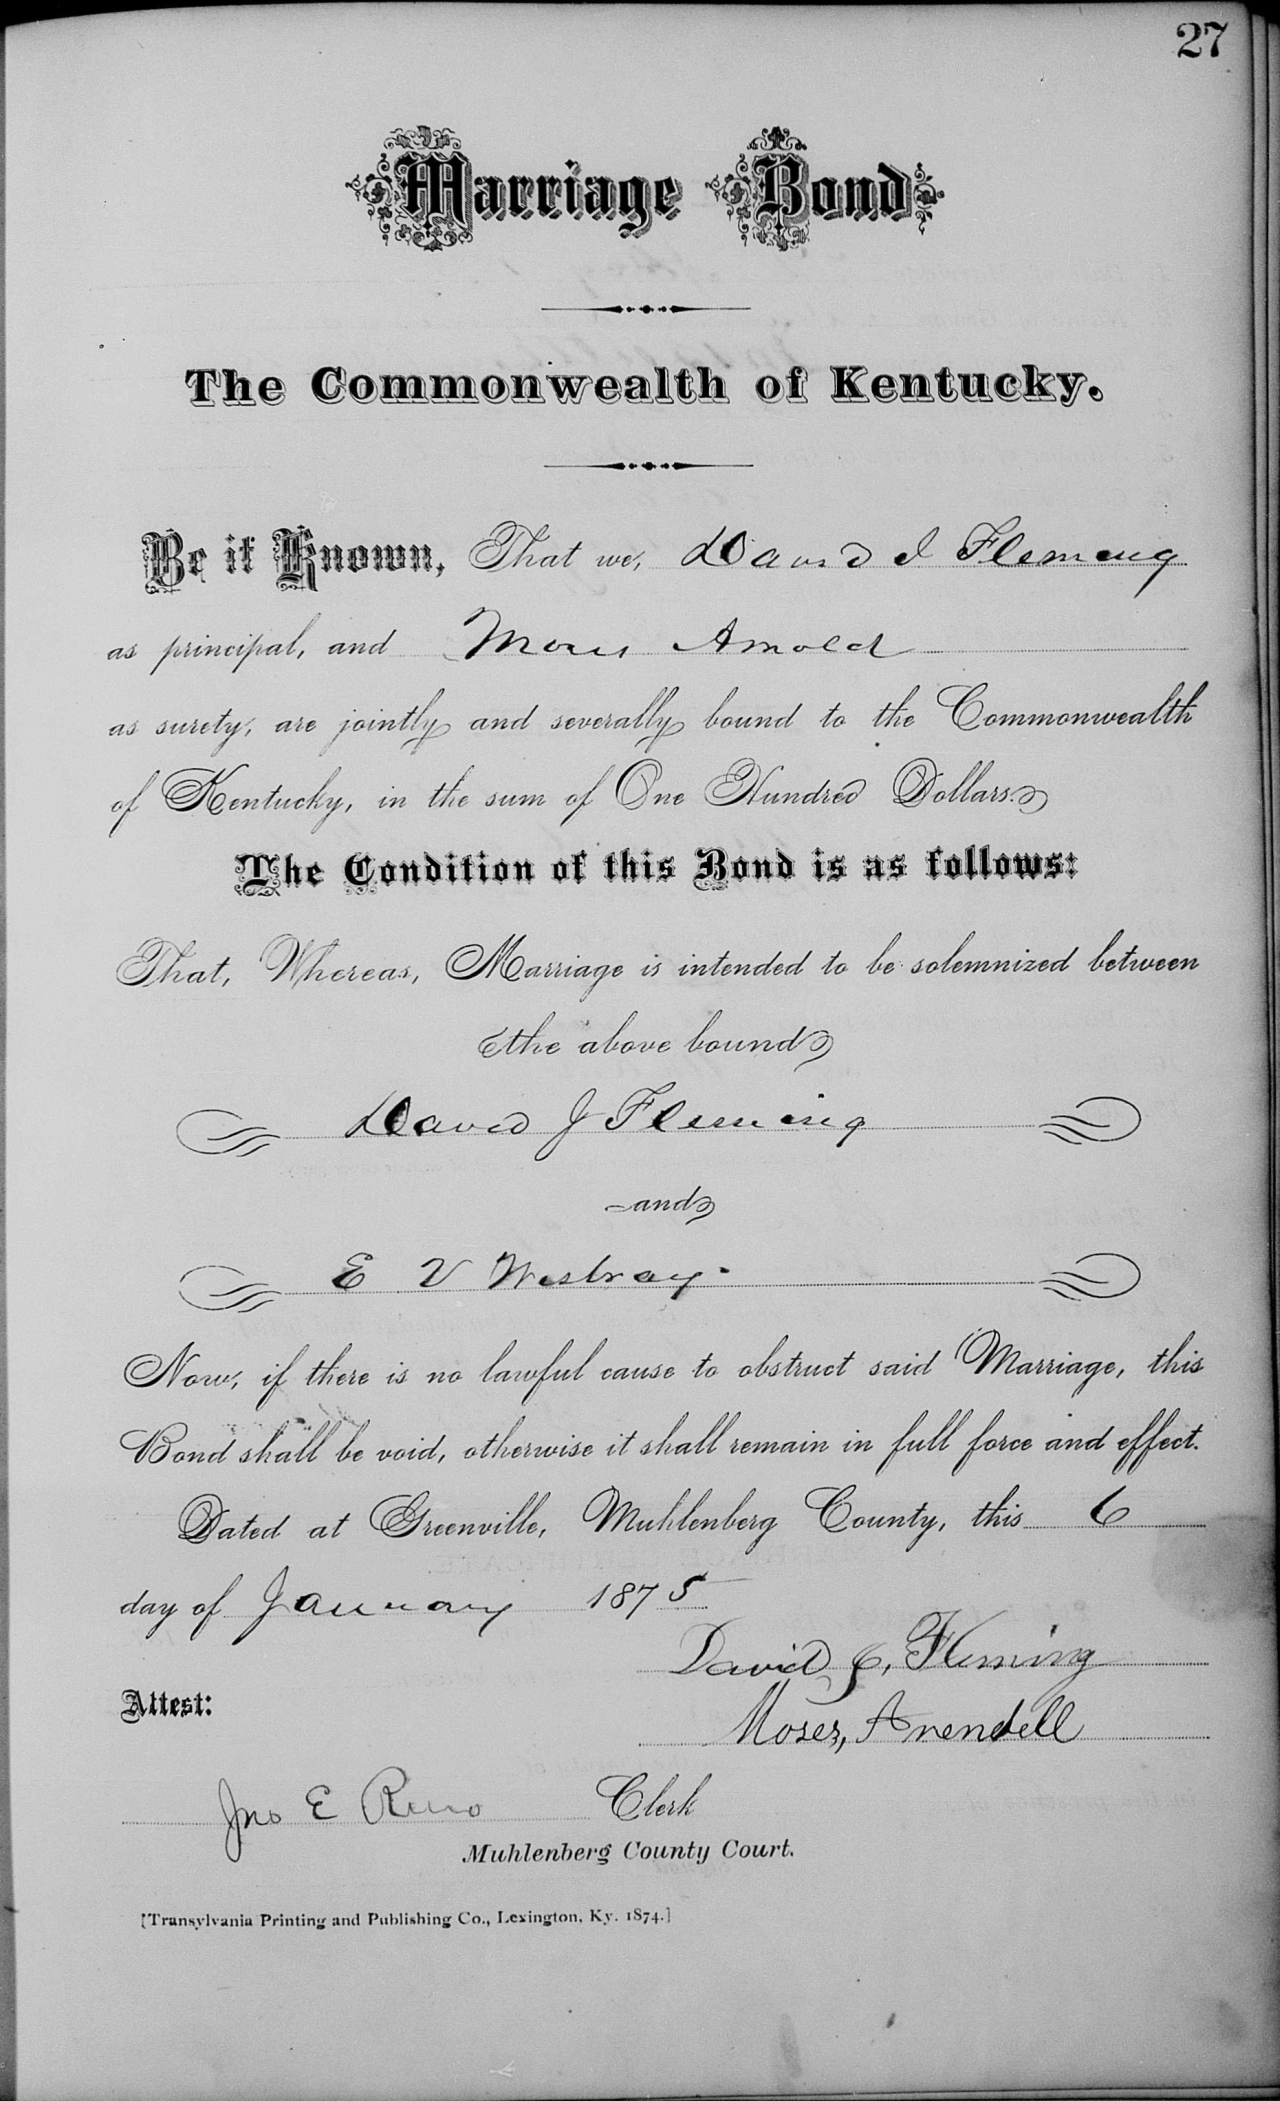 27
Marriage Bond
The Commonwealth of Kentucky.
Be it Known, That we, David J Fleming
as principal, and Moses Arnold
as surety, are jointly and severally bound to the Commonwealth
of Kentucky, in the sum of One Hundred Dollars.
The Condition of this Bond is as follows:
That, Whereas, Marriage is intended to be solemnized between
the above bound
David J Fleming
and
E V Westray
Now, if there is no lawful cause to obstruct said Marriage, this
Bond shall be void, otherwise it shall remain in full force and effect.
Dated at Greenville, Muhlenberg County, this 6
day of January 1875
David J, Fleming
Attest:
Moses, Arendell
Jno E Reno Clerk
Muhlenberg County Court.
[Transylvania Printing and Publishing Co., Lexington, Ky. 1874.]